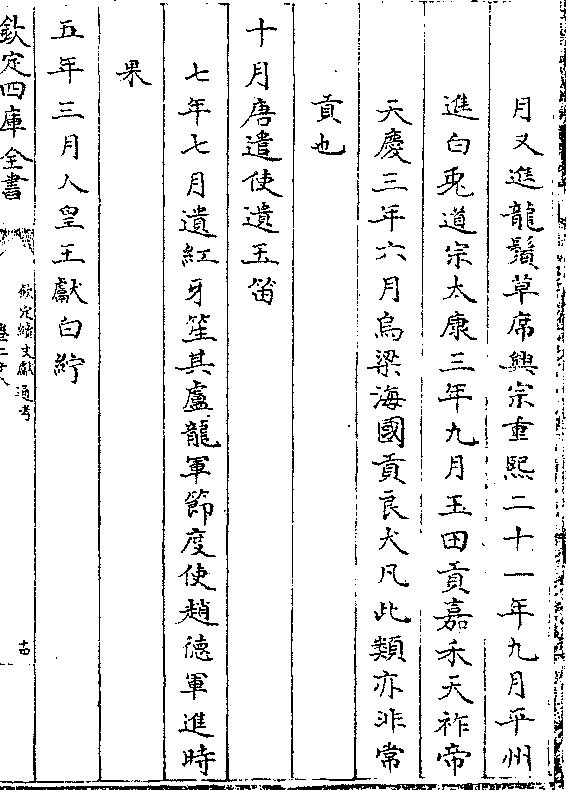 月又進龍鬚草席興宗重熙二十一年九月平州
進白兎道宗太康三年九月玉田貢嘉禾天祚帝
天慶三年六月烏梁海國貢良犬凡此類亦非常
貢也
十月唐遣使遺玉笛
七年七月遺紅牙笙其盧龍軍節度使趙徳軍進時
果
五年三月人皇王獻白紵
欽定四庫全書
欽定續文獻通考